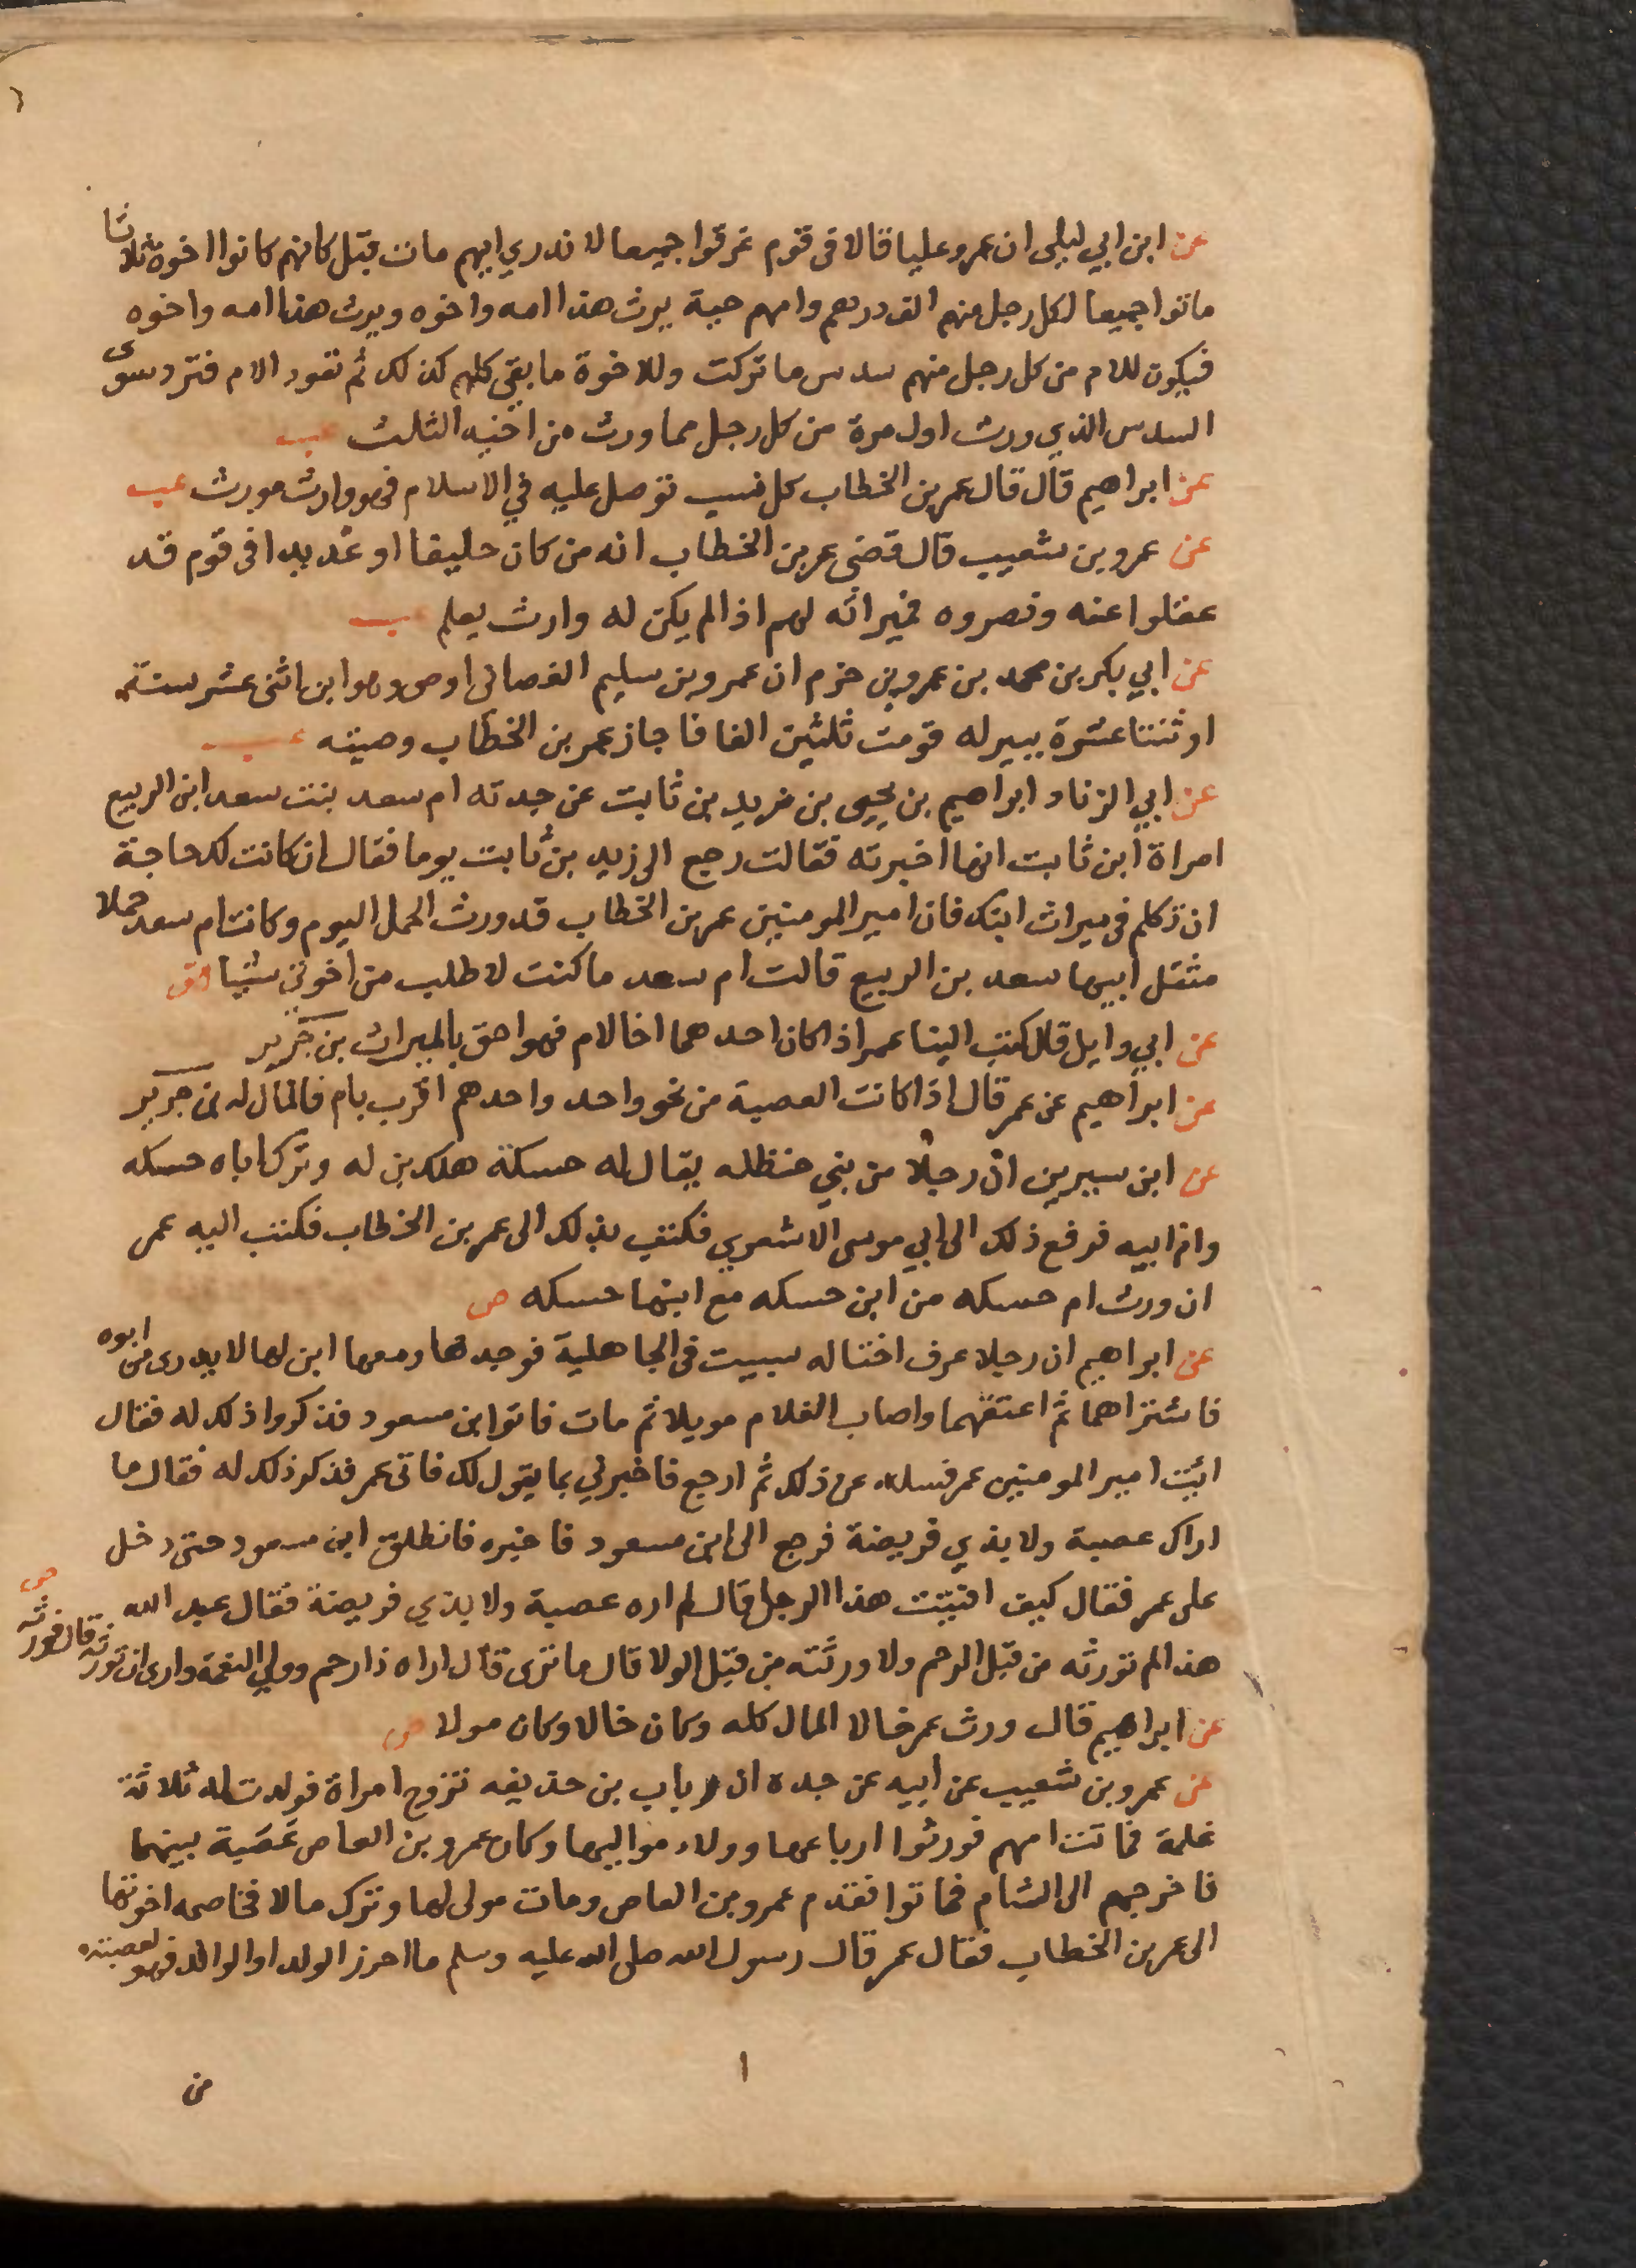 عن ابن ابي ليلى ان عمر وعليا قالا فى قوم غرقوا جميعا لا ندري ايهم مات قبل كانهم كانوا اخوة ثلاثا
ماتوا جميعا لكل رجل منهم الف درهم وامهم حية يرث هذا امه واخوه ويرث هذا امه واخوه
فيكون للام من كل رجل منهم سدس ما تركت وللاخوة ما بقي كلهم كذلك ثم تعود الام فترد سوى
السدس الذي ورث اول مرة من كل رجل مما ورث من اخيه الثلث عب
عن ابراهيم قال قال عمر بن الخطاب كل نسب توصل عليه في الاسلام فهو وارث مورث عب
عن عمرو بن شعيب قال قضى عمر بن الخطاب انه من كان حليفا او عديدا فى قوم قد
عقلوا عنه ونصروه فميراثه لهم اذا لم يكن له وارث يعلم عب
عن ابي بكر بن محمد بن عمرو بن حزم ان عمرو بن سليم الغسانى اوصى وهو ابن اثنى عشر سنة
او ثنتا عشرة ببير له قومت ثلثين الفا فاجاز عمر بن الخطاب وصيته عب
عن ابي الزناد ابراهيم بن يحيى بن زيد بن ثابت عن جدته ام سعد بنت سعد ابن الربيع
امراة ابن ثابت انها اخبرته فقالت رجع الى زيد بن ثابت يوما فقال ان كانت لك حاجة
ان نكلم فى ميراث ابنك فان امير المومنين عمر بن الخطاب قد ورث الحمل اليوم وكانت ام سعد حملا
مثقل ابيها سعد بن الربيع قالت ام سعد ما كنت لاطلب من اخوتي شيا هق
عن ابي وايل قال كتب الينا عمر اذا كان احدهما اخا لام فهو احق بالميراث بن جرير
عن ابراهيم عن عمر قال اذا كانت العصبة من نحو واحد واحدهم اقرب بام فالمال له بن جرير
عن ابن سيرين ان رجلا من بني حنظله يقال له حسكة هلك بن له وترك اباه حسكه
وام ابيه فرفع ذلك الى ابي موسى الاشعري فكتب بذلك الى عمر بن الخطاب فكتب اليه عمر
ان ورث ام حسكه من ابن حسكه مع ابنها حسكه ص
عن ابراهيم ان رجلا عرف اختا له سبيت فى الجاهلية فوجدها ومعها ابن لها لا يدرى من ابوه
فاشتراهما ثم اعتقهما واصاب الغلام مويلا ثم مات فاتوا ابن مسعود فذكروا ذلك له فقال
ائت امير المومنين عمر فسله عن ذلك ثم ارجع فاخبرني بما يقول لك فاتى عمر فذكر ذلك له فقال ما
اراك عصبة ولا بذي فريضة فرجع الى ابن مسعود فاخبره فانطلق ابن مسعود حتى دخل
على عمر فقال كيف افتيت هذا الرجل قال لم اره عصبة ولا بذي فريضة فقال عبد الله
هذا لم تورثه من قبل الرحم ولا ورثته من قبل الولا قال ما ترى قال اراه ذا رحم وولي النعمة وارى ان تورثه قال فورثه ص
عن ابراهيم قال ورث عمر خالا المال كله وكان خالا وكان مولا ص
عن عمرو بن شعيب عن ابيه عن جده ان رباب بن حذيفه تزوج امراة فولدت له ثلاثة
غلمة فماتت امهم فورثوا ارباعها وولاء مواليها وكان عمرو بن العاص عصبة بينهما
فاخرجهم الى الشام فماتوا فقدم عمرو بن العاص ومات مولى لها وترك مالا فخاصمه اخوتها
الى عمر بن الخطاب فقال عمر قال رسول الله صلى الله عليه وسلم ما احرز الولد او الوالد فهو لعصبته
ا
من